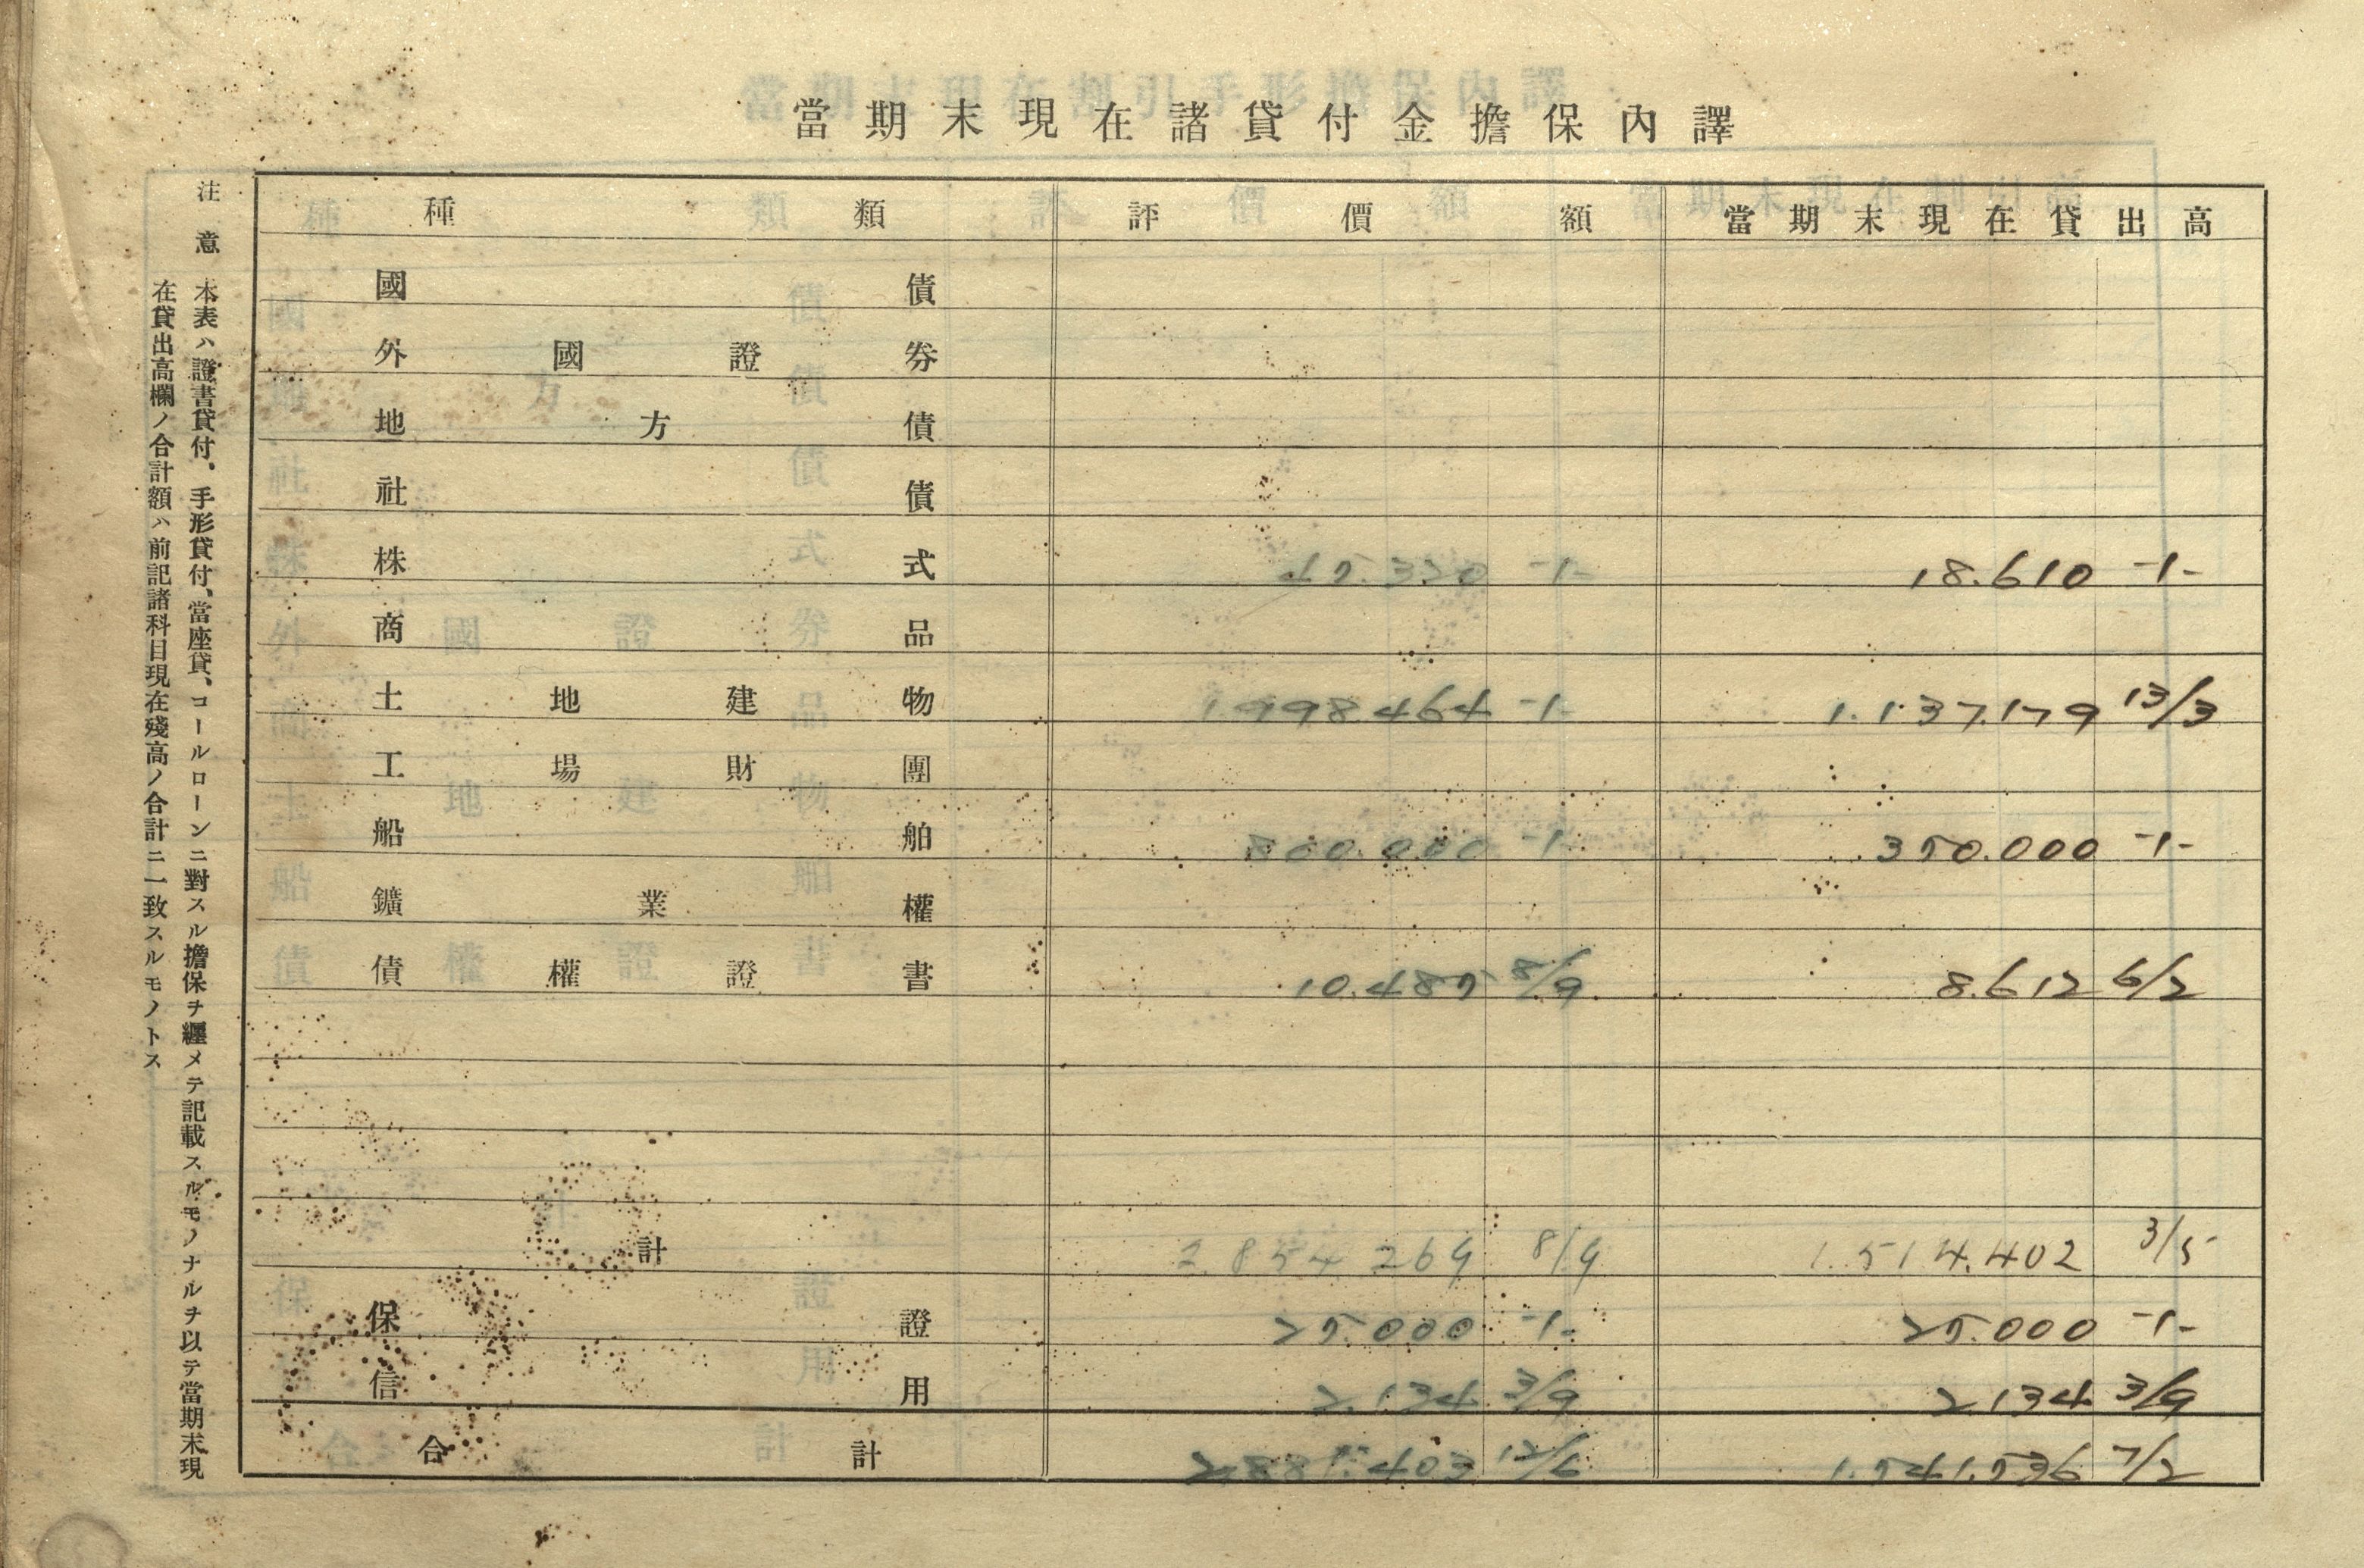 當期末現在諸貸付金擔保內譯
種類 評價額 當期末現在貸出高
國債
外國證券
地方債
社債
株式 45.320 -/- 18.610 -/-
商品
土地建物 1998.464 -/- 1.137.179 13/3
工場財團
船舶 800.000 -/- 350.000 -/-
鑛業權
債權證書 10.485 8/9 8.612 6/2
計 2.854 269 8/9 1.514.402 3/5
保證 25.000 -/- 25.000 -/-
信用 2.134 3/9 2.134 3/9
合計 2.881.403 12/6 1.541.536 7/2
注意 本表ハ證書貸付、手形貸付、當座貸、コールローンニ對スル擔保ヲ纒メテ記載スルモノナルヲ以テ當期末現
在貸出高欄ノ合計額ハ前記諸科目現在殘高ノ合計ニ一致スルモノトス